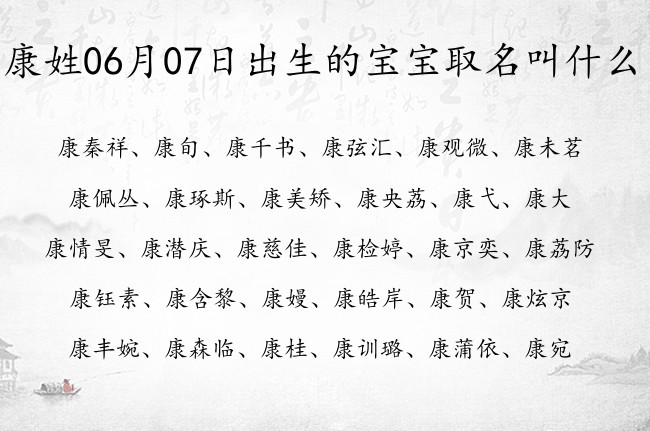 康姓06月07日出生的宝宝取名叫什么
康秦祥、康旬、康千书、康弦汇、康观微、康未茗
康佩丛、康琢斯、康美矫、康央荔、康弋、康大
康情旻、康潜庆、康慈佳、康检婷、康京奕、康荔防
康钰素、康含黎、康嫚、康皓岸、康贺、康炫京
康丰婉、康森临、康桂、康训璐、康蒲依、康宛